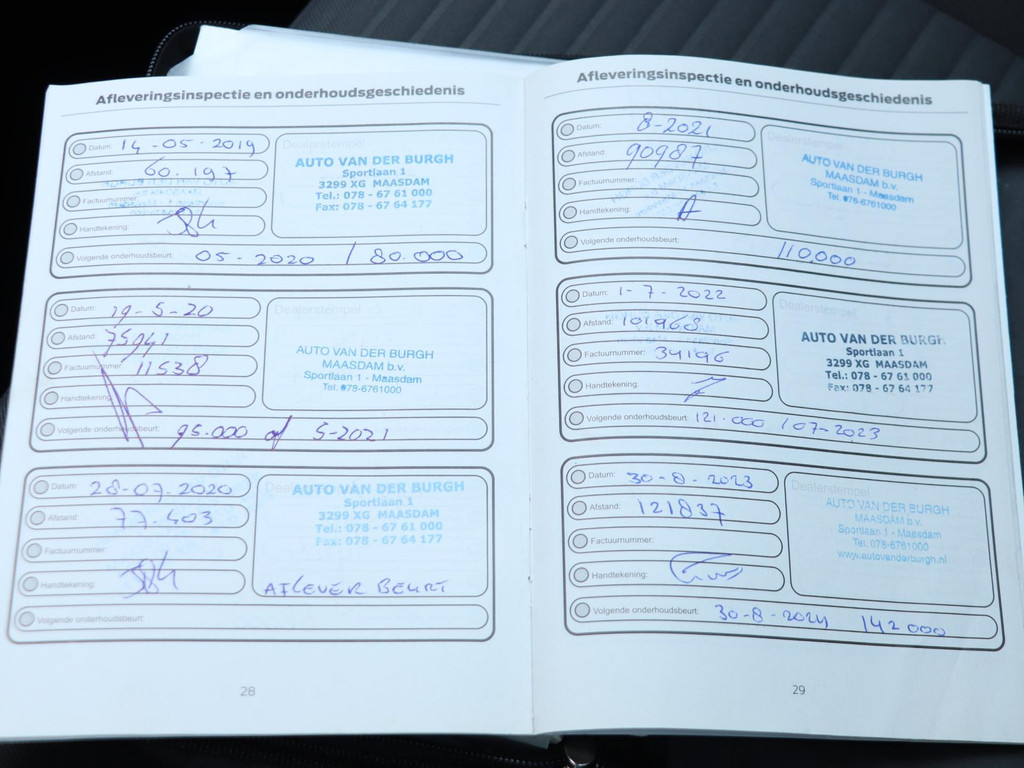 Afleveringsinspectie en onderhoudsgeschiedenis
Datum: 14-05-2019
Afstand: 60.197
Factuurnummer:
Handtekening:
Volgende onderhoudsbeurt: 05-2020 / 80.000
AUTO VAN DER BURGH
Sportlaan 1
3299 XG MAASDAM
Tel.: 078 - 67 61 000
Fax: 078 - 67 64 177
Datum: 19-5-20
Afstand: 75941
Factuurnummer: 11538
Handtekening:
Volgende onderhoudsbeurt: 95.000 of 5-2021
Dealerstempel
AUTO VAN DER BURGH
MAASDAM b.v.
Sportlaan 1 - Maasdam
Tel. 078-6761000
Datum: 28-07-2020
Afstand: 77.403
Factuurnummer:
Handtekening:
Volgende onderhoudsbeurt:
AUTO VAN DER BURGH
Sportlaan 1
3299 XG MAASDAM
Tel.: 078 - 67 61 000
Fax: 078 - 67 64 177
AFLEVER BEURT
28
Afleveringsinspectie en onderhoudsgeschiedenis
Datum: 8-2021
Afstand: 90987
Factuurnummer:
Handtekening:
Volgende onderhoudsbeurt: 110.000
Dealerstempel
AUTO VAN DER BURGH
MAASDAM b.v.
Sportlaan 1 - Maasdam
Tel. 078-6761000
Datum: 1-7-2022
Afstand: 101968
Factuurnummer: 34196
Handtekening:
Volgende onderhoudsbeurt: 121.000 / 07-2023
Dealerstempel
AUTO VAN DER BURGH
Sportlaan 1
3299 XG MAASDAM
Tel.: 078 - 67 61 000
Fax: 078 - 67 64 177
Datum: 30-8-2023
Afstand: 121837
Factuurnummer:
Handtekening:
Volgende onderhoudsbeurt: 30-8-2024 142000
Dealerstempel
AUTO VAN DER BURGH
MAASDAM b.v.
Sportlaan 1 - Maasdam
Tel. 078-6761000
www.autovanderburgh.nl
29